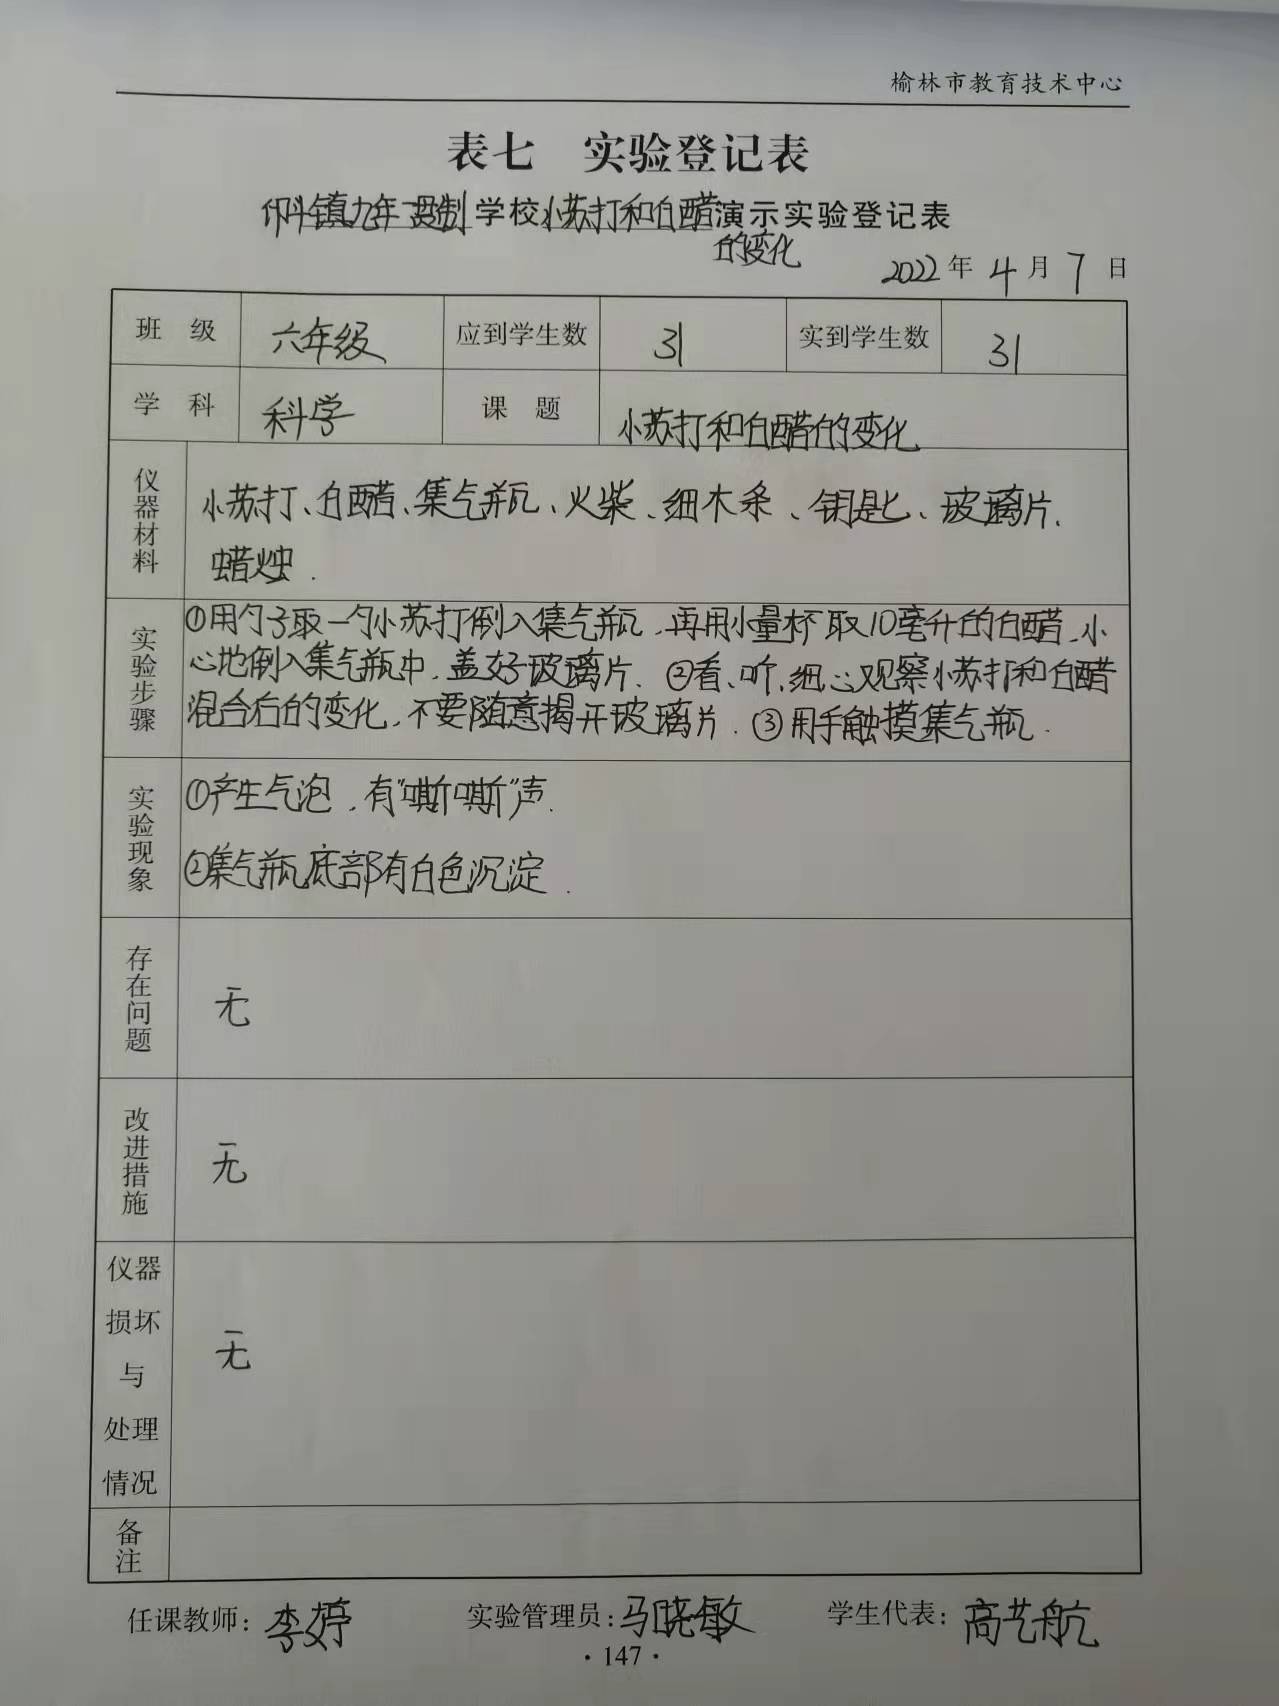 榆林市教育技术中心
表七 实验登记表
镇九年一贯制学校小苏打和白醋演示实验登记表
的变化
2022年4月7日
班级 六年级 应到学生数 31 实到学生数 31
学科 科学 课题 小苏打和白醋的变化
仪器材料
小苏打、白醋、集气瓶、火柴、细木条、钥匙、玻璃片、
蜡烛.
实验步骤
①用勺子取一勺小苏打倒入集气瓶,再用小量杯取10毫升的白醋,小
心地倒入集气瓶中,盖好玻璃片. ②看、听,细心观察小苏打和白醋
混合后的变化,不要随意揭开玻璃片. ③用手触摸集气瓶.
实验现象
①产生气泡,有“嘶嘶”声.
②集气瓶底部有白色沉淀.
存在问题
无
改进措施
无
仪器
损坏
与
处理
情况
无
备注
任课教师:李婷 实验管理员:马晓敏 学生代表:高艺航
·147·